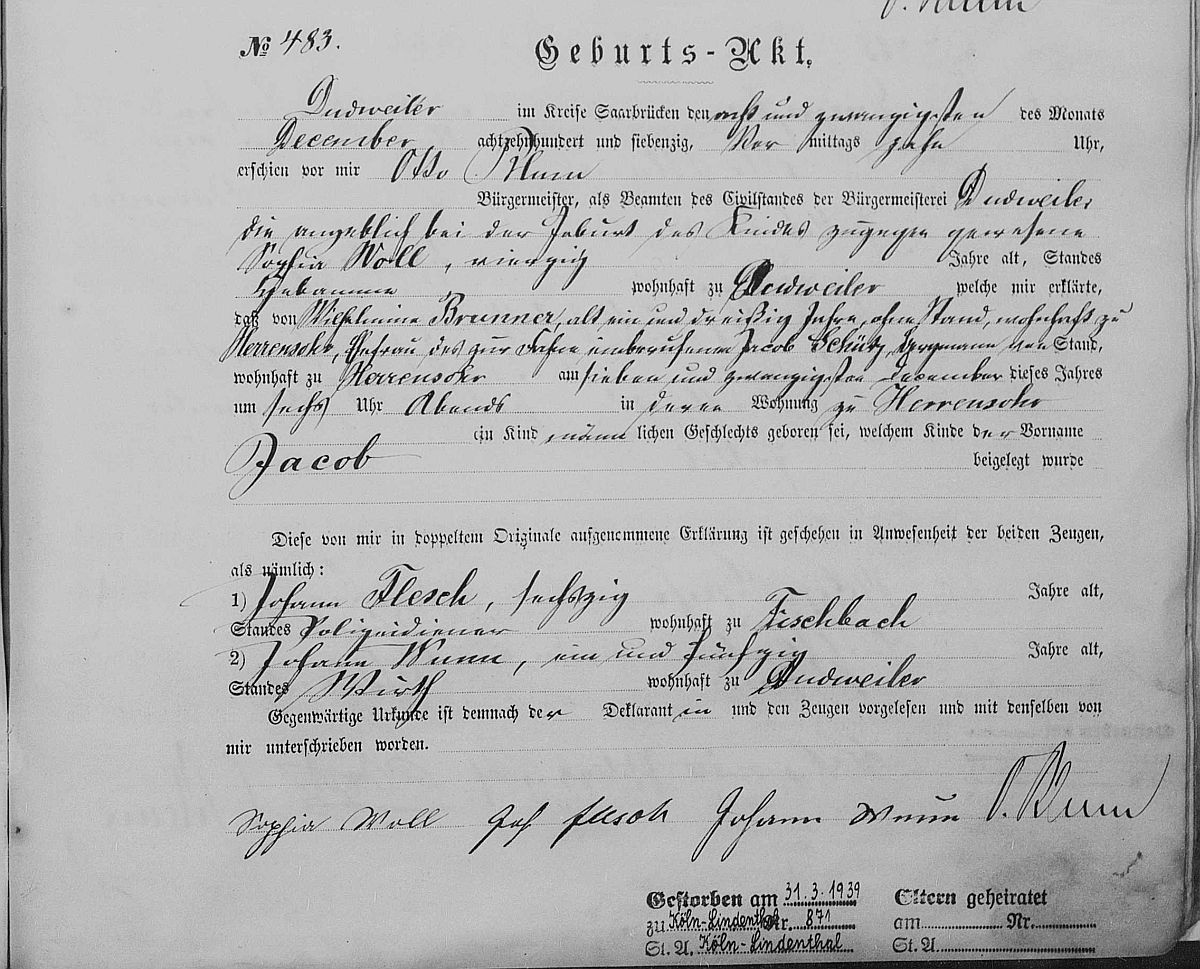 No 483.
Geburts-Akt.
Dudweiler im Kreise Saarbrücken den acht und zwanzigsten des Monats
December achtzehnhundert und siebenzig, Vor mittags zehn Uhr,
erschien vor mir Otto
Bürgermeister, als Beamten des Civilstandes der Bürgermeisterei Dudweiler
die angeblich bei der Geburt des Kindes zugegen gewesene
Sophia Woll, vierzig Jahre alt, Standes
Hebamme wohnhaft zu Dudweiler welche mir erklärte,
daß von Wilhelmine Brunner, alt ein und dreißig Jahre, ohne Stand, wohnhaft zu
Herrensohr, Ehefrau des zur Fahne einberufenen Jacob Schütz, Bergmann von Stand,
wohnhaft zu Herrensohr am sieben und zwanzigsten December dieses Jahres
um sechs Uhr Abends in deren Wohnung zu Herrensohr
ein Kind männ lichen Geschlechts geboren sei, welchem Kinde der Vorname
Jacob beigelegt wurde
Diese von mir in doppeltem Originale aufgenommene Erklärung ist geschehen in Anwesenheit der beiden Zeugen,
als nämlich:
1) Johann Flesch, sechszig Jahre alt,
Standes Polizeidiener wohnhaft zu Fischbach
2) Johann Wunn, ein und fünfzig Jahre alt,
Standes Wirth wohnhaft zu Dudweiler
Gegenwärtige Urkunde ist demnach der Deklarant in und den Zeugen vorgelesen und mit denselben von
mir unterschrieben worden.
Sophia Woll Joh Flesch Johann Wunn
Gestorben am 31.3.1939 Eltern geheiratet
zu Köln-Lindenthal Nr. 871 am Nr.
St. A. Köln-Lindenthal St. A.